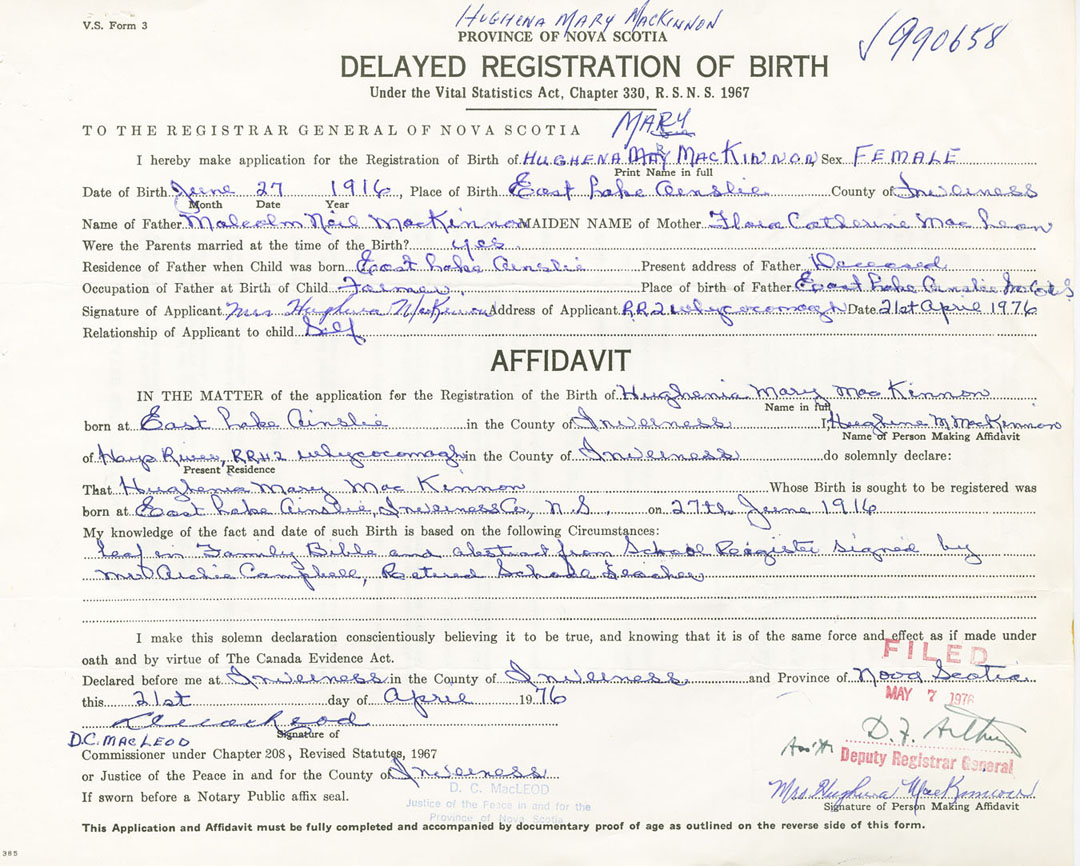 Hughena Mary MacKinnon
V.S. Form 3
PROVINCE OF NOVA SCOTIA
√990658
DELAYED REGISTRATION OF BIRTH
Under the Vital Statistics Act, Chapter 330, R. S. N. S. 1967
TO THE REGISTRAR GENERAL OF NOVA SCOTIA MARY
I hereby make application for the Registration of Birth of HUGHENA MARY MACKINNON, Sex FEMALE
Print Name in full
Date of Birth June 27 1916, Place of Birth East Lake Ainslie County of Inverness
Month Date Year
Name of Father Malcolm Neil MacKinnon MAIDEN NAME of Mother Flora Catherine MacLean
Were the Parents married at the time of the Birth? yes.
Residence of Father when Child was born East Lake Ainslie Present address of Father Deceased
Occupation of Father at Birth of Child Farmer. Place of birth of Father East Lake Ainslie Inv Co N S
Signature of Applicant Mrs Hughena MacKinnon Address of Applicant RR2 Whycocomagh Date 21st April 1976
Relationship of Applicant to child Self
AFFIDAVIT
IN THE MATTER of the application for the Registration of the Birth of Hughenia Mary Mac Kinnon
Name in full
born at East Lake Ainslie in the County of Inverness I Hughine M MacKinnon
Name of Person Making Affidavit
of Hays River, RR#2 Whycocomagh in the County of Inverness do solemnly declare:
Present Residence
That Hughenia Mary Mac Kinnon Whose Birth is sought to be registered was
born at East Lake Ainslie, Inverness Co, N. S. on 27th June 1916
My knowledge of the fact and date of such Birth is based on the following Circumstances:
Leaf in Family Bible and abstract from School Register signed by
Mrs Archie Campbell, Retired School Teacher
I make this solemn declaration conscientiously believing it to be true, and knowing that it is of the same force and effect as if made under
oath and by virtue of The Canada Evidence Act.
FILED
Declared before me at Inverness in the County of Inverness and Province of Nova Scotia
this 21st day of April 1976
MAY 7 1976
D C MacLeod
Signature of
D.C. MACLEOD
D. F. Arthur
Ass't Deputy Registrar General
Commissioner under Chapter 208, Revised Statutes, 1967
or Justice of the Peace in and for the County of Inverness
D. C. MacLEOD
Mrs Hughena MacKinnon
If sworn before a Notary Public affix seal.
Justice of the Peace in and for the
Signature of Person Making Affidavit
Province of Nova Scotia
This Application and Affidavit must be fully completed and accompanied by documentary proof of age as outlined on the reverse side of this form.
385